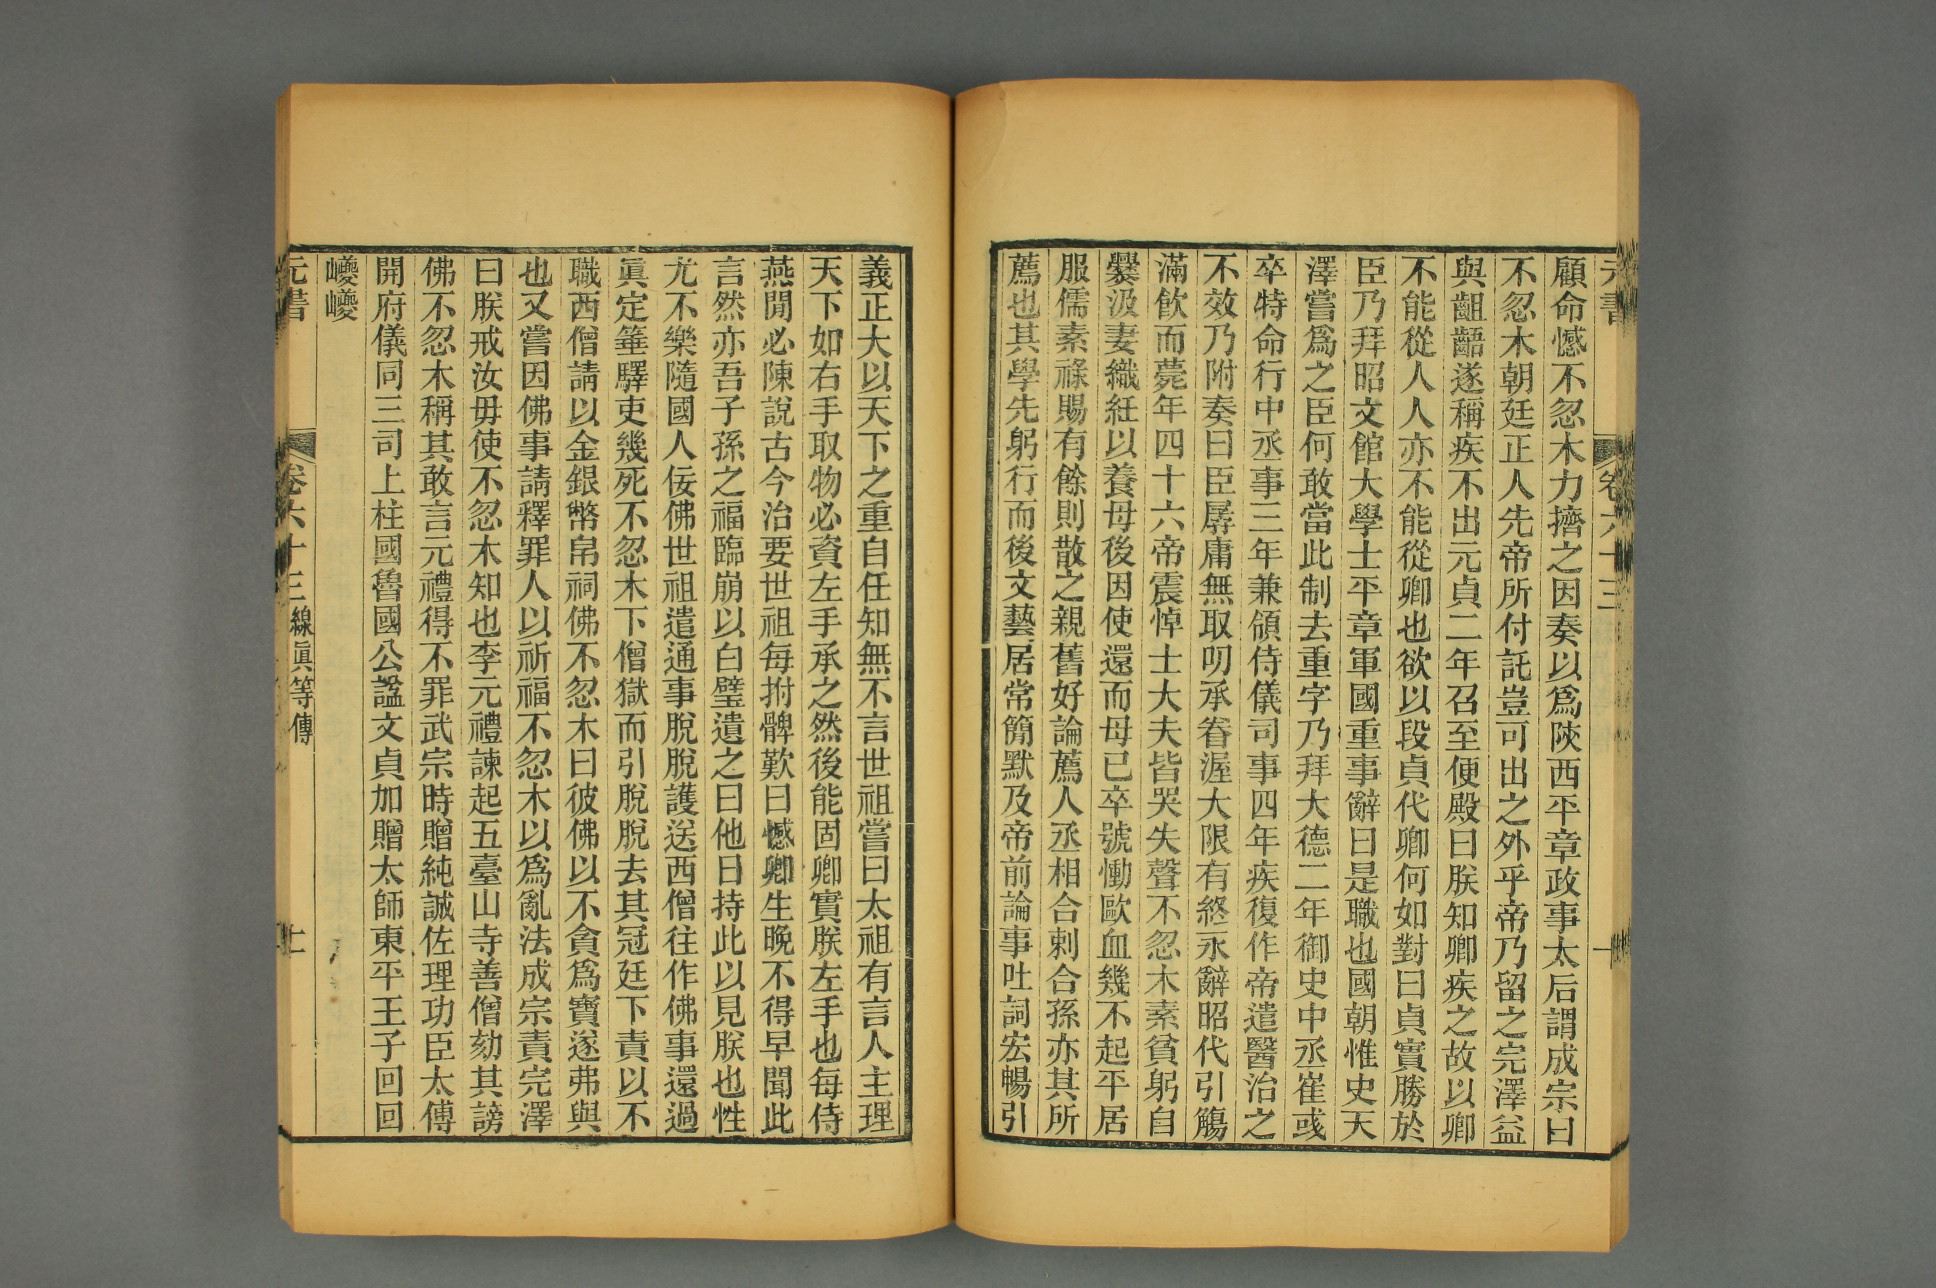 元書 卷六十三
顧命憾不忽木力擠之因奏以爲陝西平章政事太后謂成宗曰
不忽木朝廷正人先帝所付託豈可出之外乎帝乃留之完澤益
與齟齬遂稱疾不出元貞二年召至便殿曰朕知卿疾之故以卿
不能從人人亦不能從卿也欲以段貞代卿何如對曰貞實勝於
臣乃拜昭文館大學士平章軍國重事辭曰是職也國朝惟史天
澤嘗爲之臣何敢當此制去重字乃拜大德二年御史中丞崔彧
卒特命行中丞事三年兼領侍儀司事四年疾復作帝遣醫治之
不效乃附奏曰臣孱庸無取叨承眷渥大限有終永辭昭代引觴
滿飲而薨年四十六帝震悼士大夫皆哭失聲不忽木素貧躬自
爨汲妻織紝以養母後因使還而母已卒號慟歐血幾不起平居
服儒素祿賜有餘則散之親舊好論薦人丞相合剌合孫亦其所
薦也其學先躬行而後文藝居常簡默及帝前論事吐詞宏暢引
義正大以天下之重自任知無不言世祖嘗曰太祖有言人主理
天下如右手取物必資左手承之然後能固卿實朕左手也每侍
燕閒必陳說古今治要世祖每拊髀歎曰憾卿生晚不得早聞此
言然亦吾子孫之福臨崩以白璧遺之曰他日持此以見朕也性
尤不樂隨國人佞佛世祖遣通事脫脫護送西僧往作佛事還過
眞定箠驛吏幾死不忽木下僧獄而引脫脫去其冠廷下責以不
職西僧請以金銀幣帛祠佛不忽木曰彼佛以不貪爲寶遂弗與
也又嘗因佛事請釋罪人以祈福不忽木以爲亂法成宗責完澤
曰朕戒汝毋使不忽木知也李元禮諫起五臺山寺善僧劾其謗
佛不忽木稱其敢言元禮得不罪武宗時贈純誠佐理功臣太傅
開府儀同三司上柱國魯國公諡文貞加贈太師東平王子回回
巙巙
元書 卷六十三 線眞等傳 十一